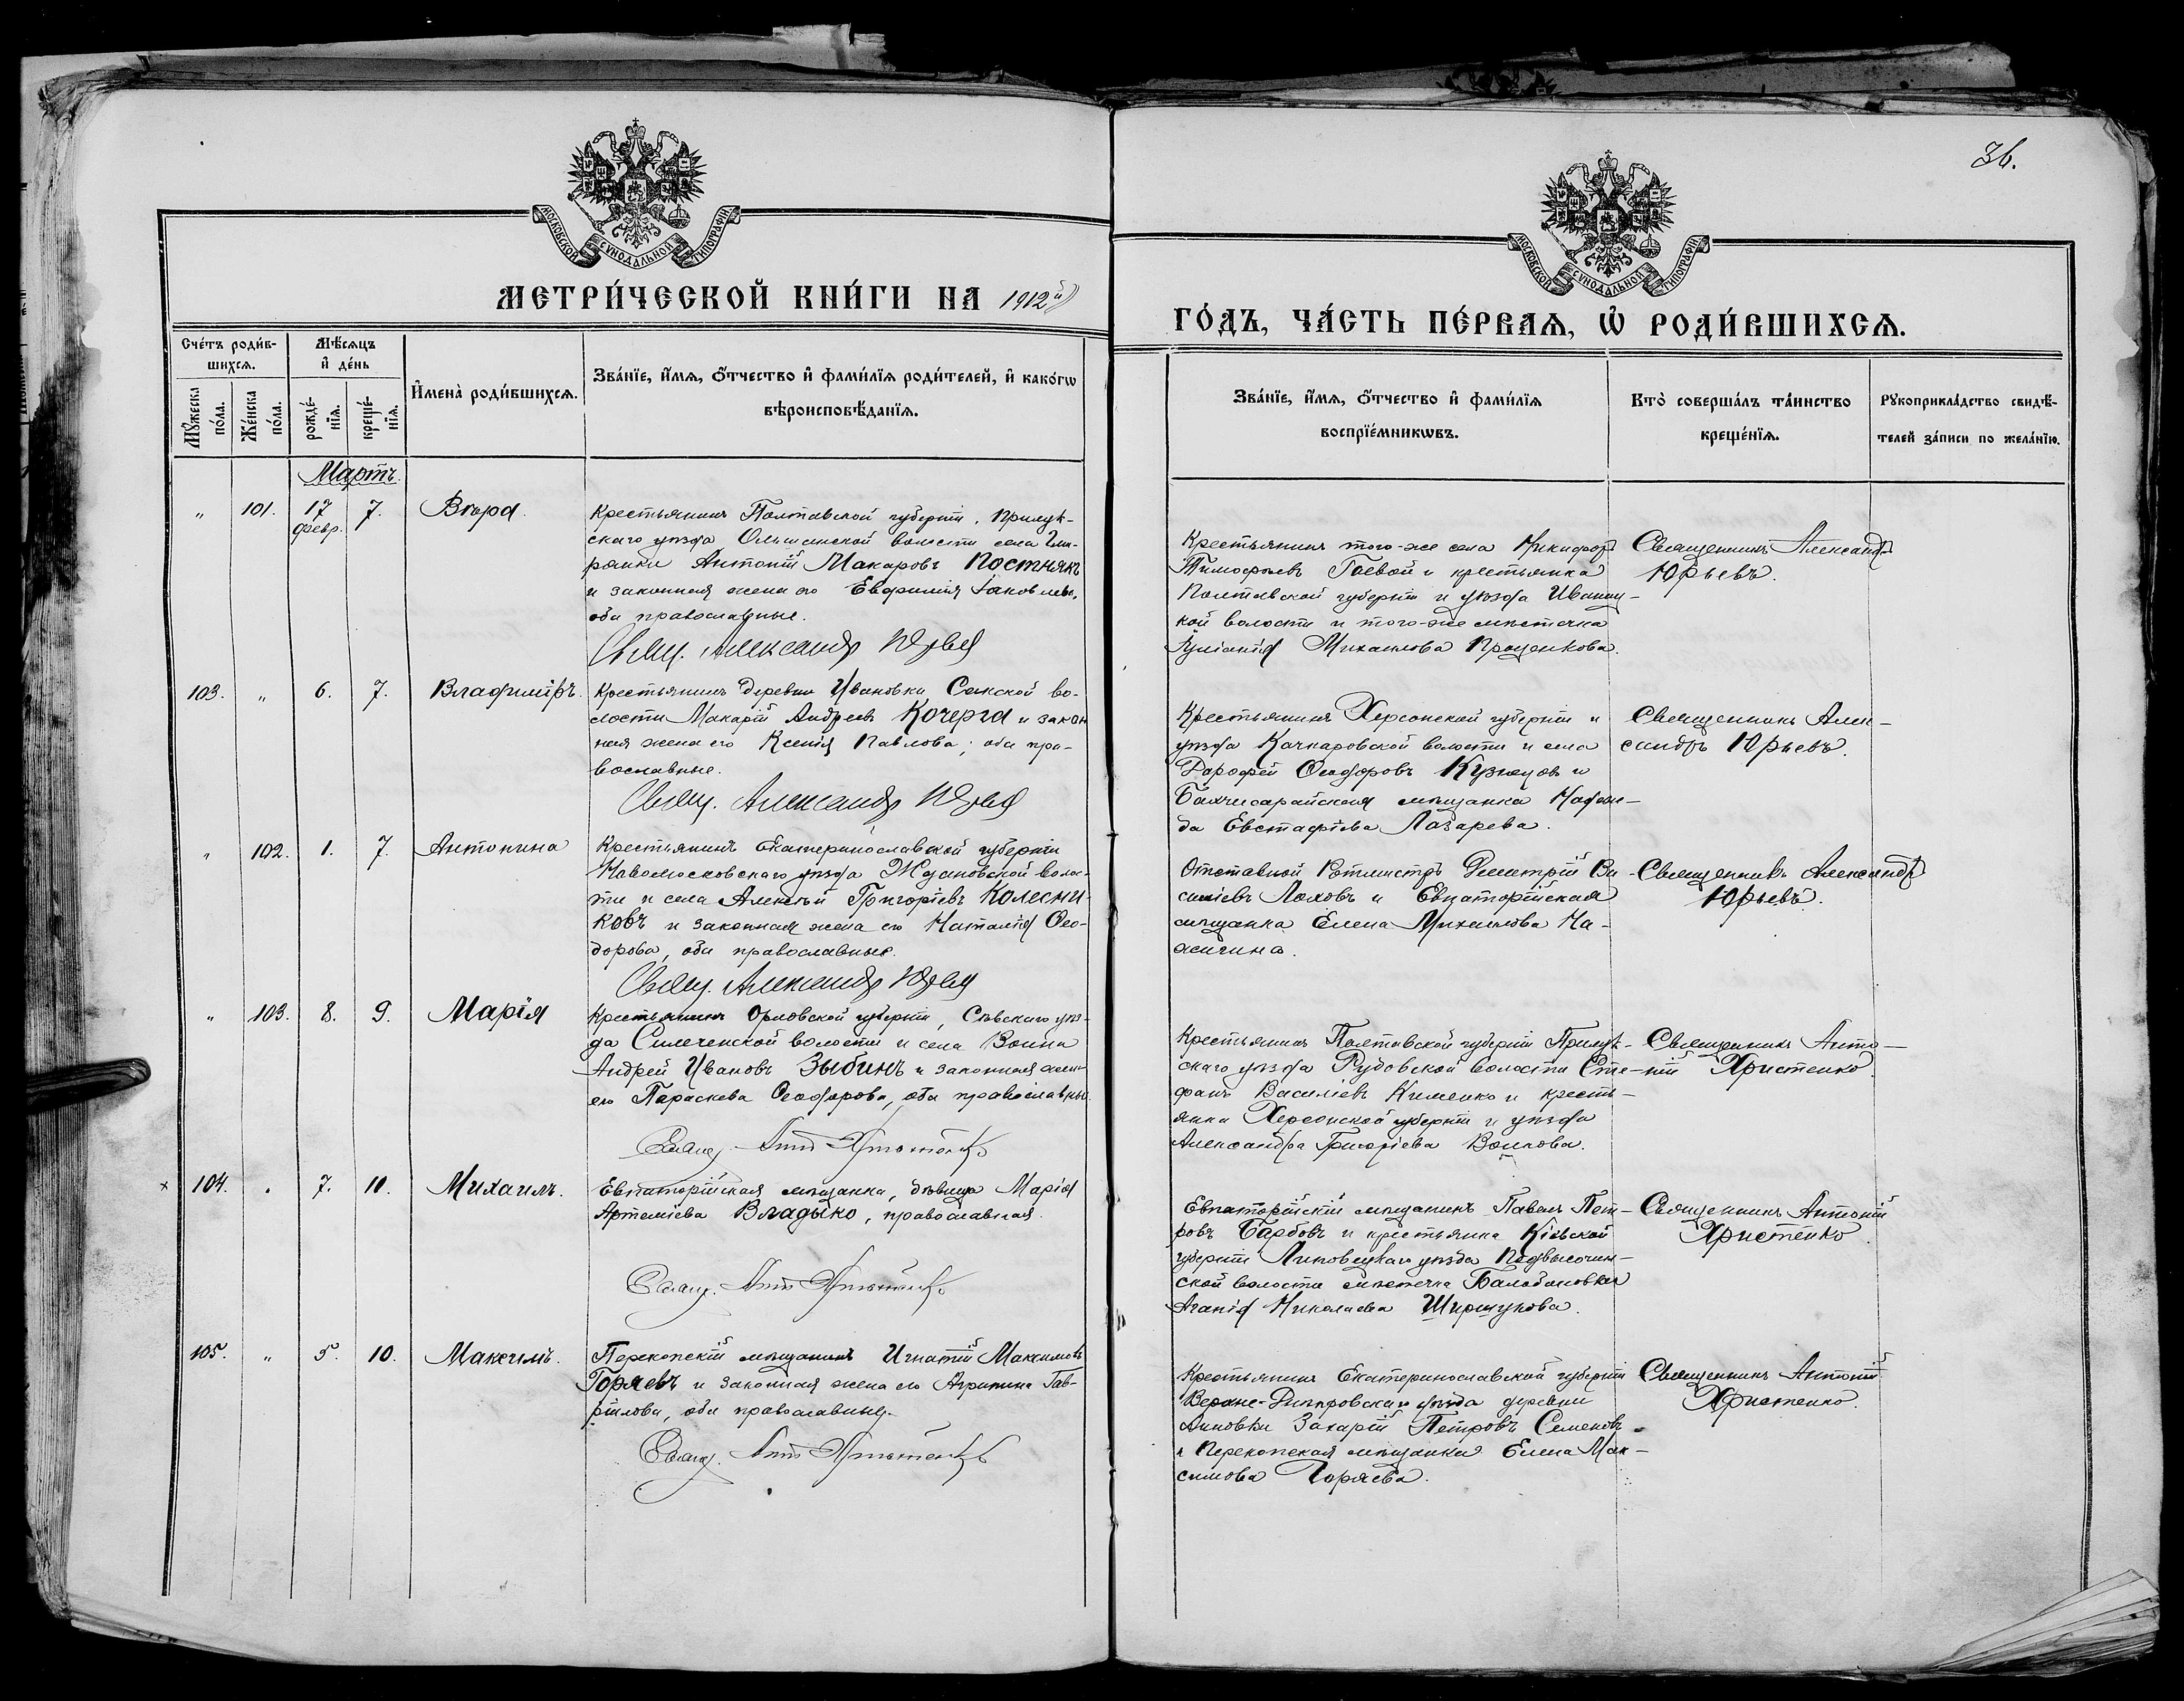 36.
МОСКОВСКОЙ СѴНОДАЛЬНОЙ ТИПОГРАФІИ
МОСКОВСКОЙ СѴНОДАЛЬНОЙ ТИПОГРАФІИ
МЕТРИ́ЧЕСКОЙ КНИ́ГИ НА 1912й
ГО́ДЪ, ЧА́СТЬ ПЕ́РВАѦ, Ѽ РОДИ́ВШИХСѦ.
Сче́тъ роди́в-
шихсѧ.
Мꙋ́жеска по́ла.
Же́нска по́ла.
Мѣ́сѧцъ
и҆ де́нь
рожде́-
нїѧ.
креще́-
нїѧ.
И҆мена̀ роди́вшихсѧ.
Зва́нїе, и҆́мѧ, ѻ҆́тчество и҆ фами́лїѧ роди́телей, и҆ како́гѡ
вѣроисповѣ́данїѧ.
Зва́нїе, и҆́мѧ, ѻ҆́тчество и҆ фами́лїѧ
воспрїе́мникѡвъ.
Кто̀ соверша́лъ та́инство
креще́нїѧ.
Рꙋкоприкла́дство свидѣ́-
телей за́писи по жела́нїю.
Мартъ.
" 101. 17 февр. 7. Вѣра.
Крестьянинъ Полтавской губерніи, Прилук-
скаго уѣзда Ольшанской волости села
Антоній Макаровъ Постнякъ
и законная жена его Евфимія Іаковлева,
оба православные.
Свящ. Александр Юрьев
Крестьянинъ того-же села Никифоръ
Тимофеевъ Гаевой и крестьянка
Полтавской губерніи и уѣзда
кой волости и того-же мѣстечка
Іуліанія Михаилова Проценкова.
Священникъ Александръ
Юрьевъ.
103. " 6. 7. Владиміръ.
Крестьянинъ деревни Ивановки, Сакской во-
лости Макарій Андреевъ Кочерга и закон
ная жена его Ксенія Павлова, оба пра-
вославные.
Свящ. Александр Юрьев
Крестьянинъ Херсонской губерніи и
уѣзда Качкаровской волости и села
Дорофей Ѳеодоровъ Кузнецовъ и
Бахчисарайская мѣщанка Надеж-
да Евстафіева Лазарева.
Священникъ Алек-
сандръ Юрьевъ.
" 102. 1. 7. Антонина
Крестьянинъ Екатеринославской губерніи
Новомосковскаго уѣзда волос-
ти и села Алексѣй Григоріевъ Колесни-
ковъ и законная жена его Наталія Ѳео-
дорова, оба православные.
Свящ. Александр Юрьев
Отставной Ротмистръ Димитрій Ва-
силіевъ и Евпаторійская
мѣщанка Елена Михаилова
Священникъ Александръ
Юрьевъ.
" 103. 8. 9. Марія
Крестьянинъ Орловской губерніи, Сѣвскаго уѣз-
да Силеченской волости и села
Андрей Ивановъ Зыбинъ и законная жена
его Параскева Ѳеодорова, оба православные.
Свящ. Антоній Христенко
Крестьянинъ Полтавской губерніи Прилук-
скаго уѣзда Рудовской волости Сте-
фанъ Василіевъ Кименко и кресть-
янка Херсонской губерніи и уѣзда
Александра Григоріева Волкова.
Священникъ Анто-
ній Христенко.
× 104. " 7. 10. Михаилъ.
Евпаторійская мѣщанка, дѣвица Марія
Артеміева Владыко, православная.
Свящ. Антоній Христенко
Евпаторійскій мѣщанинъ Павелъ Пет-
ровъ Барбовъ и крестьянка Кіевской
губерніи Липовецкаго уѣзда Подвысочин-
ской волости мѣстечка Балабановки
Агапія Николаева Ширшукова.
Священникъ Антоній
Христенко.
105. " 5. 10. Максимъ.
Перекопскій мѣщанинъ Игнатій Максимовъ
Горяевъ и законная жена его Агрипина Гав-
ріилова, оба православные.
Свящ. Антоній Христенко
Крестьянинъ Екатеринославской губерніи
Верхне-Днѣпровскаго уѣзда деревни
Анновки Захарій Петровъ Семеновъ
и Перекопская мѣщанка Елена Мак-
симова Горяева.
Священникъ Антоній
Христенко.